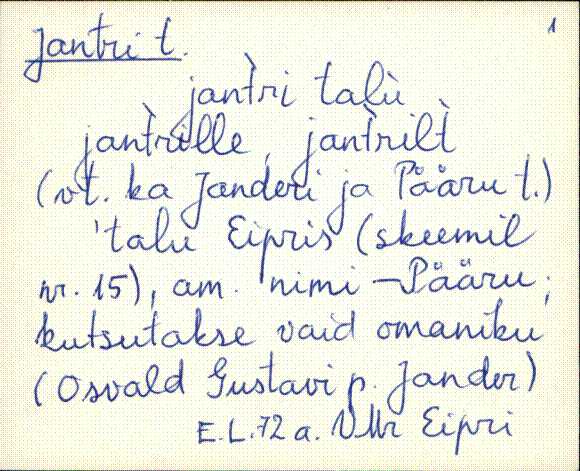 Jantri t.
1
jantri talù
jantrille, jantrilt
(vt. ka Janderi ja Pääru t.)
'talu Eipris (skeemil
nr. 15), am. nimi – Pääru;
kutsutakse vaid omaniku
(Osvald Gustavi p. Jander)
E.L. 72 a. VMr Eipri